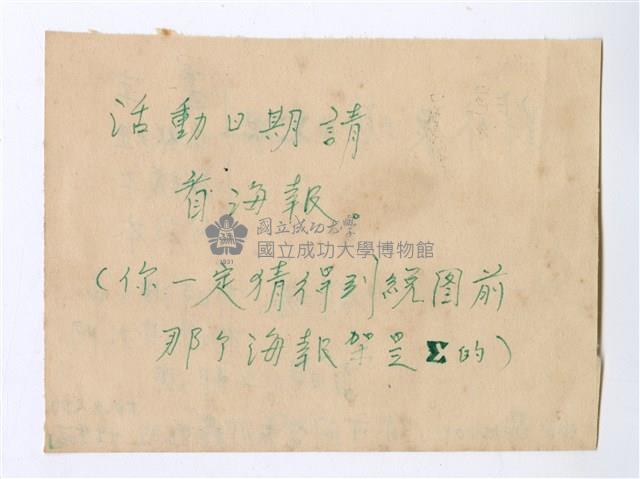 活動日期請
看海報。
國立成功大學
國立成功大學博物館
1931
(你一定猜得到総图前
那个海報架是Σ的)